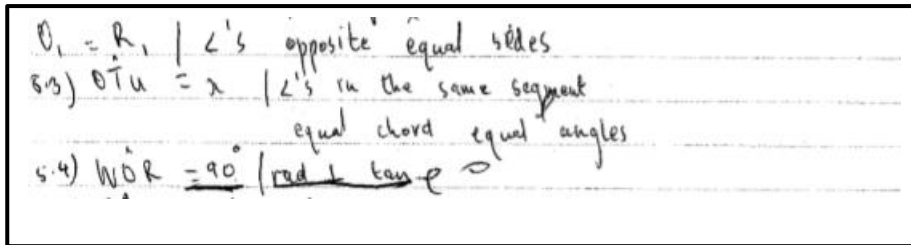 O₁ = R₁ | ∠'s opposite equal sides
5.3) OT̂U = x | ∠'s in the same segment
equal chord equal angles
5.4) WÔR = 90° | rad ⊥ tan